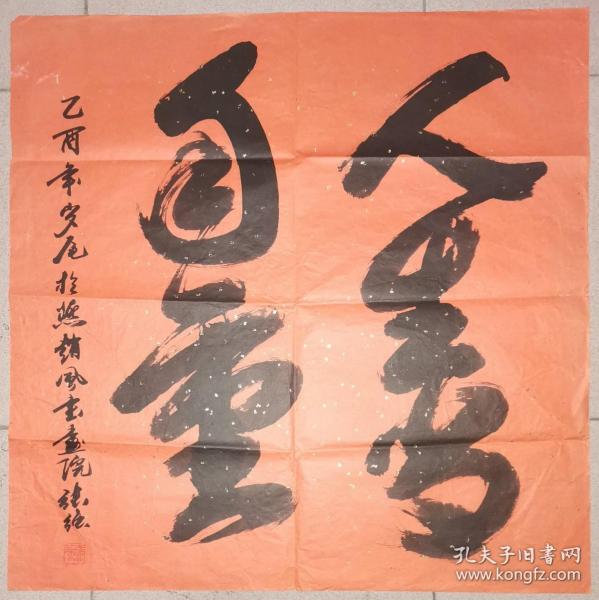 人貴
自重
乙酉年岁尾於燕趙风書畫院
孔夫子旧书网
www.kongfz.com